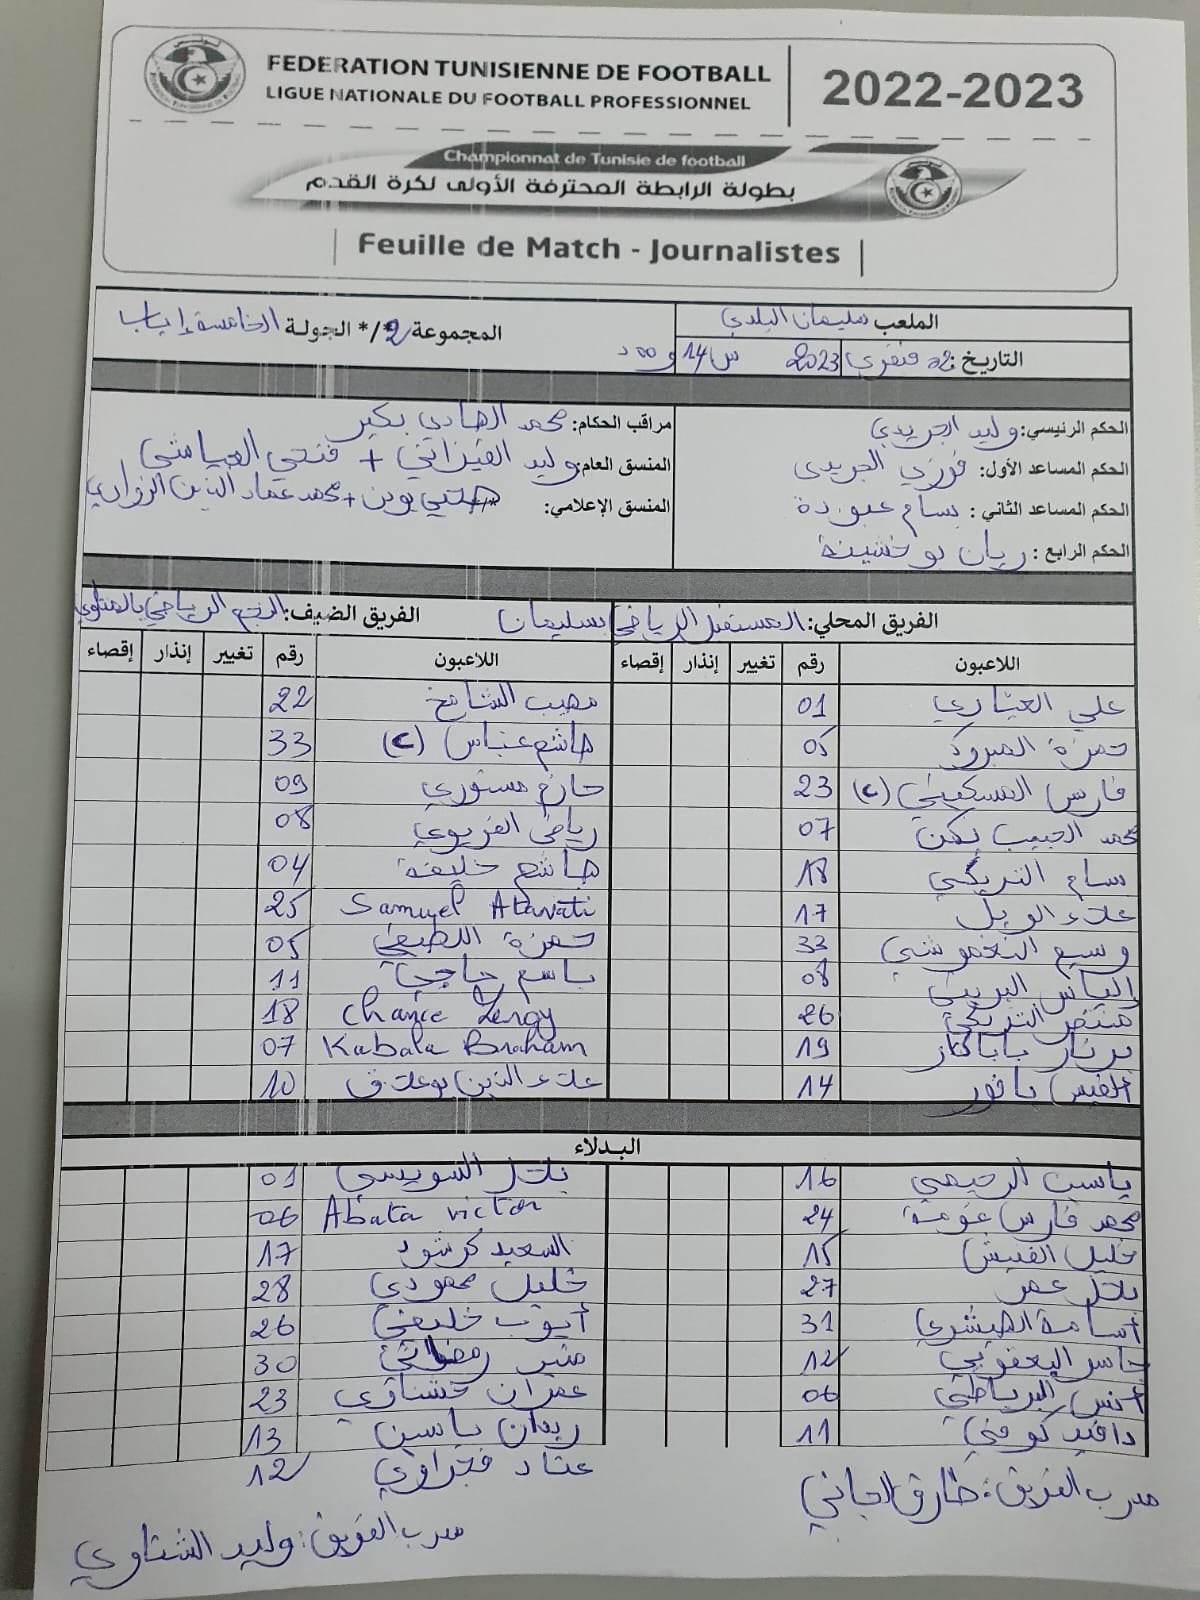 FEDERATION TUNISIENNE DE FOOTBALL
LIGUE NATIONALE DU FOOTBALL PROFESSIONNEL
2022-2023
Championnat de Tunisie de football
بطولة الرابطة المحترفة الأولى لكرة القدم
Feuille de Match - Journalistes
الملعب سليمان البلدي
المجموعة 2 /* الجولة الخامسة إياب
التاريخ: 02 فيفري 2023 س 14 و 00 د
الحكم الرئيسي: وليد الجريدي
الحكم المساعد الأول: فوزي الجريدي
الحكم المساعد الثاني: بسام عبودة
الحكم الرابع: ريان بوخشينة
مراقب الحكام: محمد الهادي بكير
المنسق العام: وليد القيزاني + فتحي العياشي
المنسق الإعلامي: + محمد عماد الدين الزواري
الفريق المحلي: المستقبل الرياضي بسليمان
الفريق الضيف: النجم الرياضي بالمتلوي
اللاعبون رقم تغيير إنذار إقصاء
اللاعبون رقم تغيير إنذار إقصاء
علي العياري 01
مصيب الشامخ 22
حمزة المبروك 05
هاشم عباس (C) 33
فارس المسكيني (C) 23
حازم مستوري 09
محمد الحبيب يكن 07
رياض الفريوي 08
بسام التريكي 18
هاشم خليفة 04
علاء الويل 17
Samuel Atavati 25
وسيم النغموشي 33
حمزة اللطيفي 05
إلياس البريني 08
باسم حاجي 11
منتصر التريكي 26
Chance Zengy 18
برنار باباكاز 19
Kabala Braham 07
الفيس بافور 14
علاء الدين بوعلاق 10
البدلاء
ياسين الرحيمي 16
بلال السويسي 01
محمد فارس عومة 24
Abata victor 06
خليل الفيش 15
السعيد كرشود 17
بلال عمر 27
خليل محمودي 28
أسامة الهيشري 31
أيوب خليفي 26
جاسر اليعقوبي 12
منير رمضاني 30
أنس البرباطي 06
عمران خشناوي 23
دافيد كوفي 11
ريدان ياسين 13
عتاد فجراوي 12
مدرب الفريق: طارق الجاني
مدرب الفريق: وليد الشتاوي